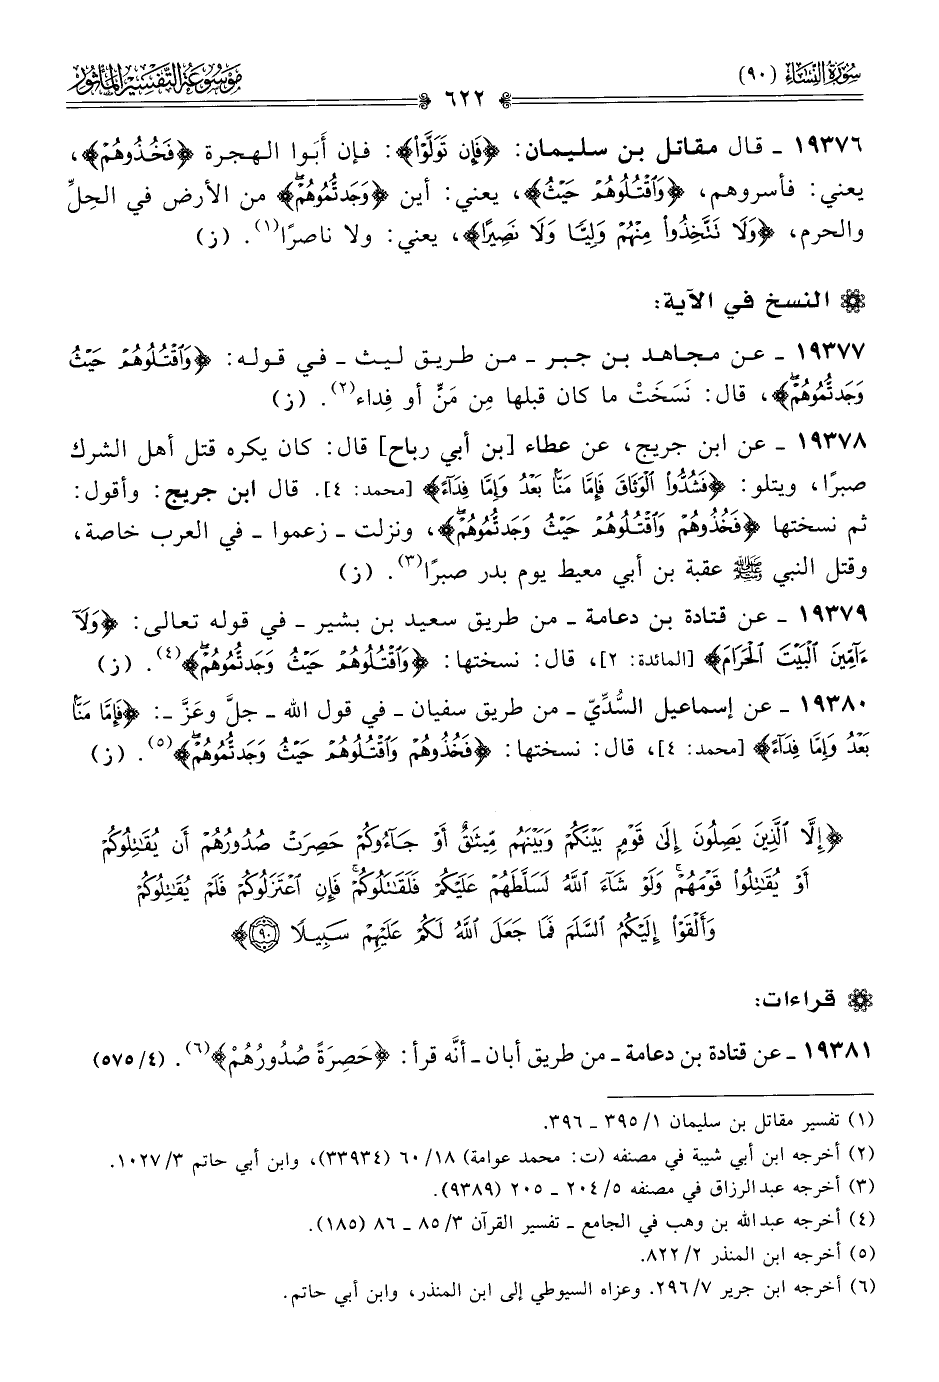 سُورَةُ النِّسَاءِ (٩٠)
مَوْسُوعَة التَّفْسِير المَأْثُور
٦٢٢
١٩٣٧٦ ـ قال مقاتل بن سليمان: ﴿فَإِن تَوَلَّوْا۟﴾: فإن أَبَوا الهجرة ﴿فَخُذُوهُمْ﴾،
يعني: فأسروهم، ﴿وَٱقْتُلُوهُمْ حَيْثُ﴾، يعني: أين ﴿وَجَدتُّمُوهُمْۖ﴾ من الأرض في الحِلِّ
والحرم، ﴿وَلَا نَتَّخِذُوا۟ مِنْهُمْ وَلِيًّا وَلَا نَصِيرًا﴾، يعني: ولا ناصرًا(١). (ز)
النسخ في الآية:
١٩٣٧٧ ـ عن مجاهد بن جبر ـ من طريق ليث ـ في قوله: ﴿وَٱقْتُلُوهُمْ حَيْثُ
وَجَدتُّمُوهُمْۖ﴾، قال: نَسَخَتْ ما كان قبلها مِن مَنٍّ أو فِداء(٢). (ز)
١٩٣٧٨ ـ عن ابن جريج، عن عطاء [بن أبي رباح] قال: كان يكره قتل أهل الشرك
صبرًا، ويتلو: ﴿فَشُدُّوا۟ ٱلْوَثَاقَ فَإِمَّا مَنًّۢا بَعْدُ وَإِمَّا فِدَآءً﴾ [محمد: ٤]. قال ابن جريج: وأقول:
ثم نسختها ﴿فَخُذُوهُمْ وَٱقْتُلُوهُمْ حَيْثُ وَجَدتُّمُوهُمْۖ﴾، ونزلت ـ زعموا ـ في العرب خاصة،
وقتل النبي ﷺ عقبة بن أبي معيط يوم بدر صبرًا(٣). (ز)
١٩٣٧٩ ـ عن قتادة بن دعامة ـ من طريق سعيد بن بشير ـ في قوله تعالى: ﴿وَلَآ
ءَآمِّينَ ٱلْبَيْتَ ٱلْحَرَامَ﴾ [المائدة: ٢]، قال: نسختها: ﴿وَٱقْتُلُوهُمْ حَيْثُ وَجَدتُّمُوهُمْۖ﴾(٤). (ز)
١٩٣٨٠ ـ عن إسماعيل السُّدِّيّ ـ من طريق سفيان ـ في قول الله ـ جلَّ وعَزَّ ـ: ﴿فَإِمَّا مَنًّۢا
بَعْدُ وَإِمَّا فِدَآءً﴾ [محمد: ٤]، قال: نسختها: ﴿فَخُذُوهُمْ وَٱقْتُلُوهُمْ حَيْثُ وَجَدتُّمُوهُمْۖ﴾(٥). (ز)
﴿إِلَّا ٱلَّذِينَ يَصِلُونَ إِلَىٰ قَوْمِۭ بَيْنَكُمْ وَبَيْنَهُم مِّيثَٰقٌ أَوْ جَآءُوكُمْ حَصِرَتْ صُدُورُهُمْ أَن يُقَٰتِلُوكُمْ
أَوْ يُقَٰتِلُوا۟ قَوْمَهُمْۚ وَلَوْ شَآءَ ٱللَّهُ لَسَلَّطَهُمْ عَلَيْكُمْ فَلَقَٰتَلُوكُمْۚ فَإِنِ ٱعْتَزَلُوكُمْ فَلَمْ يُقَٰتِلُوكُمْ
وَأَلْقَوْا۟ إِلَيْكُمُ ٱلسَّلَمَ فَمَا جَعَلَ ٱللَّهُ لَكُمْ عَلَيْهِمْ سَبِيلًا ٩٠﴾
قراءات:
١٩٣٨١ ـ عن قتادة بن دعامة ـ من طريق أبان ـ أنَّه قرأ: ﴿حَصِرَةً صُدُورُهُمْ﴾(٦). (٤/ ٥٧٥)
(١) تفسير مقاتل بن سليمان ١/ ٣٩٥ ـ ٣٩٦.
(٢) أخرجه ابن أبي شيبة في مصنفه (ت: محمد عوامة) ١٨/ ٦٠ (٣٣٩٣٤)، وابن أبي حاتم ٣/ ١٠٢٧.
(٣) أخرجه عبدالرزاق في مصنفه ٥/ ٢٠٤ ـ ٢٠٥ (٩٣٨٩).
(٤) أخرجه عبدالله بن وهب في الجامع ـ تفسير القرآن ٣/ ٨٥ ـ ٨٦ (١٨٥).
(٥) أخرجه ابن المنذر ٢/ ٨٢٢.
(٦) أخرجه ابن جرير ٧/ ٢٩٦. وعزاه السيوطي إلى ابن المنذر، وابن أبي حاتم.